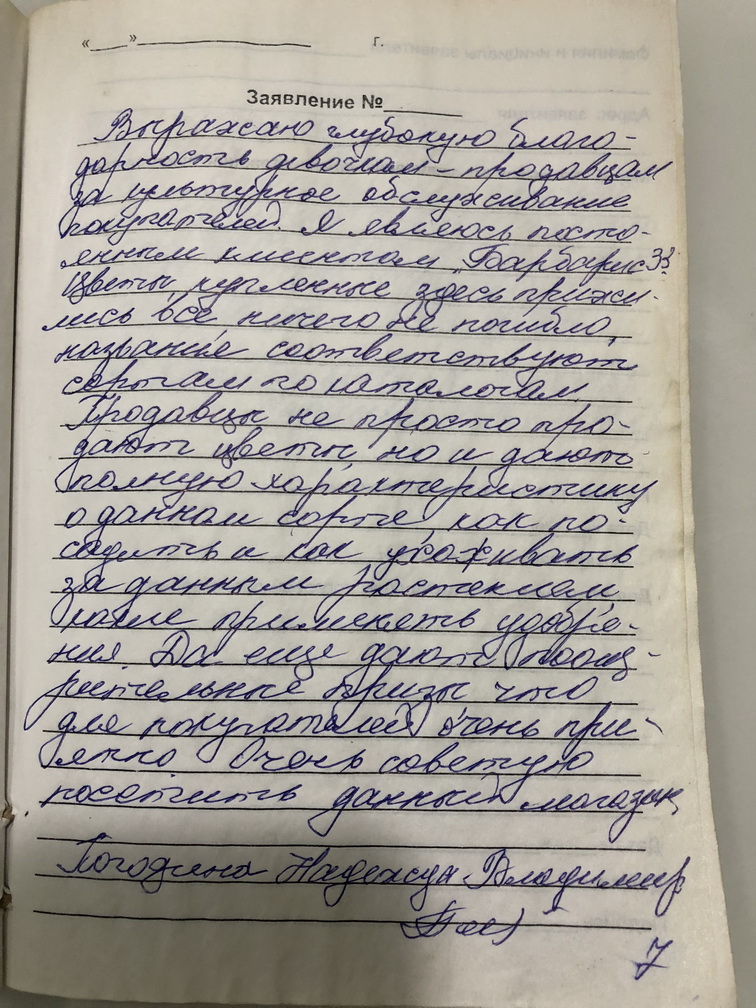 «___»____________________ г.
Заявление №________
Выражаю глубокую благо-
дарность девочкам - продавцам
за культурное обслуживание
покупателей. Я являюсь посто-
янным клиентом "Барбарис 33"
Цветы купленные здесь прижи-
лись все ничего не погибло,
название соответствуют
сортам по каталогам
Продавцы не просто про-
дают цветы, но и дают
полную характеристику
о данном сорте, как по-
садить и как ухаживать
за данным растением,
какие применять удобре-
ния. Да еще дают поощ-
рительные призы что
для покупателей очень при-
ятно Очень советую
посетить данный магазин,
Погодина Надежда Владимир
7